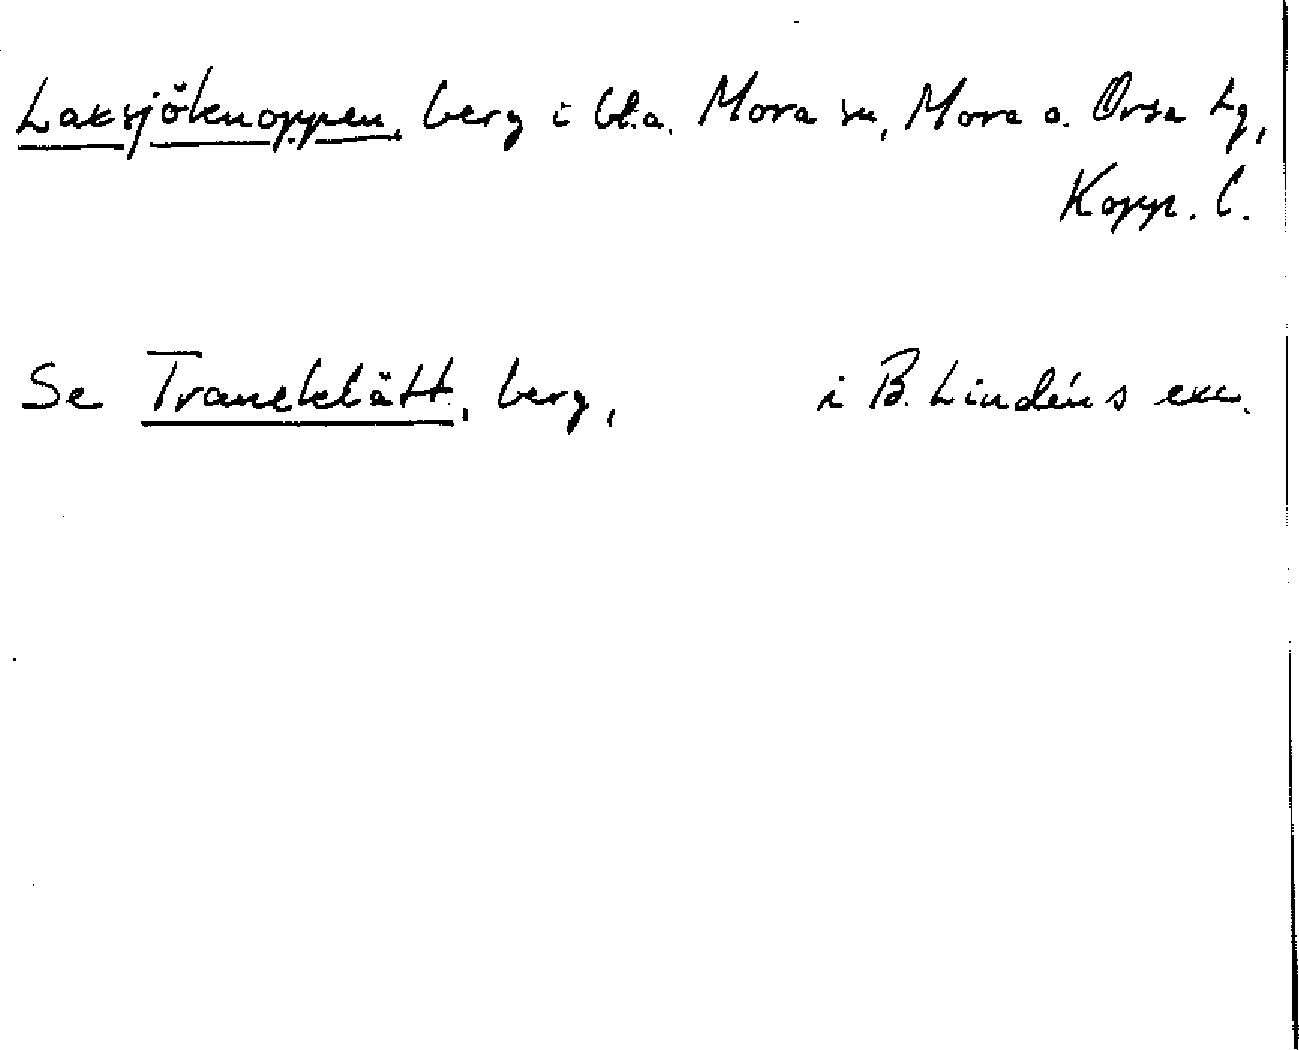 Laksjöknoppen, berg i bl.a. Mora sn, Mora o. Orsa tg,
Kopp. l.
Se Traneklätt, berg, i B. Lindéns exc.